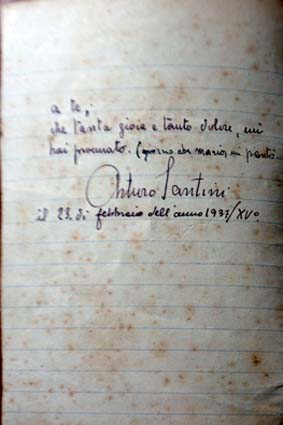 a te,
che tanta gioia e tanto dolore, mi
hai procurato. (giorno che mario mi portò
Arturo Santini
il 23. di febbraio dell'anno 1937/XVº